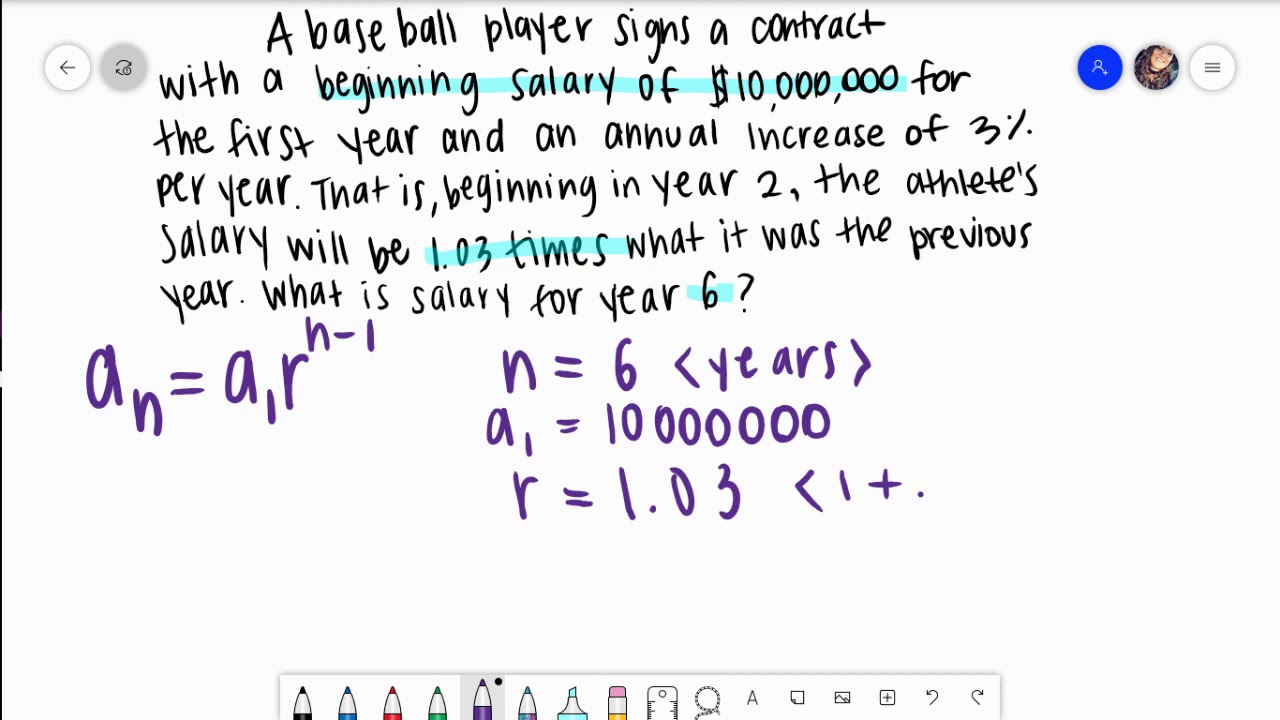 A baseball player signs a contract
with a beginning salary of $10,000,000 for
the first year and an annual increase of 3%
per year. That is, beginning in year 2, the athlete's
salary will be 1.03 times what it was the previous
year. What is salary for year 6?
aₙ = a₁rⁿ⁻¹
n = 6 <years>
a₁ = 10000000
r = 1.03 <1+.
A